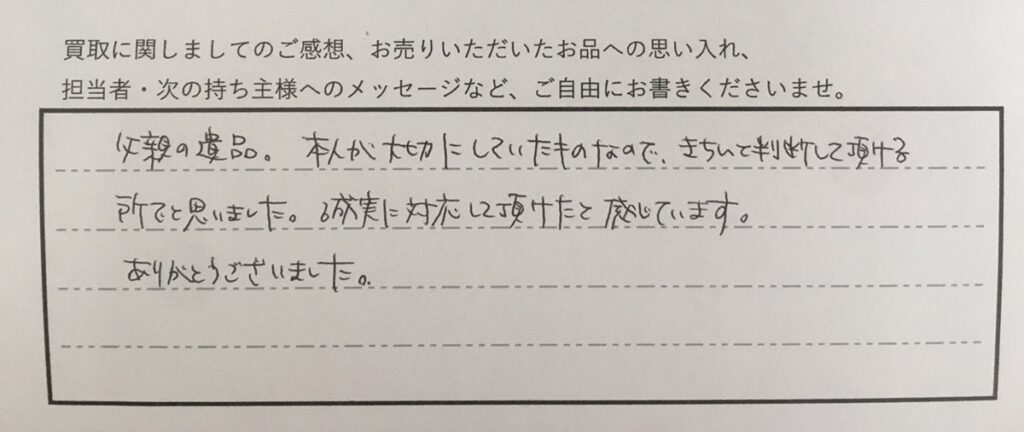 買取に関しましてのご感想、お売りいただいたお品への思い入れ、
担当者・次の持ち主様へのメッセージなど、ご自由にお書きくださいませ。
父親の遺品。本人が大切にしていたものなので、きちんと判断して頂ける
所でと思いました。誠実に対応して頂けたと感じています。
ありがとうございました。